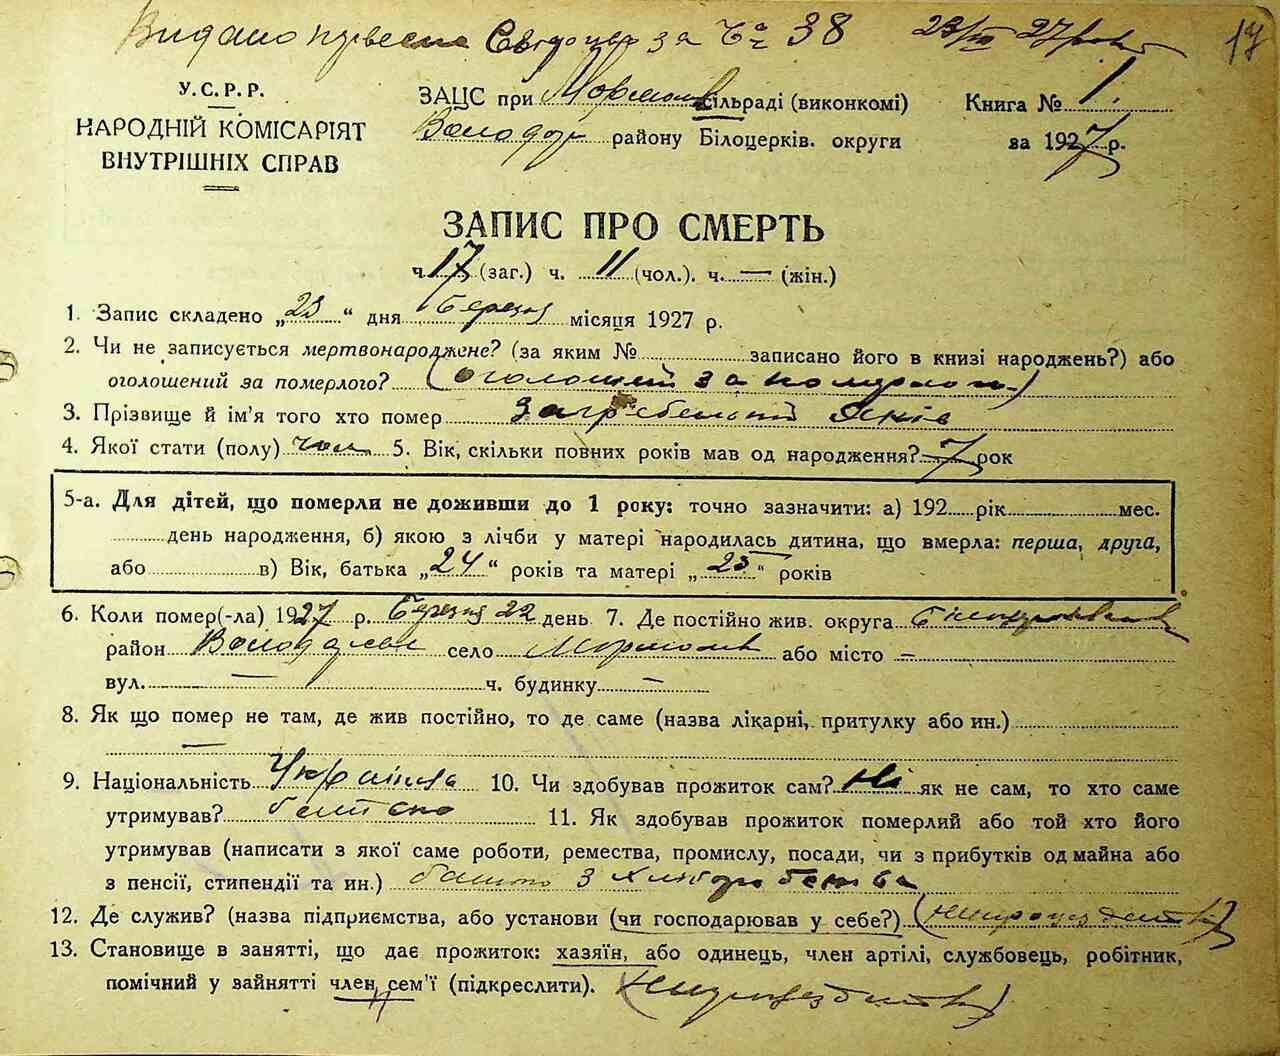 Видано за Ч. 38 27 року 17
У.С.Р.Р.
НАРОДНІЙ КОМІСАРІЯТ
ВНУТРІШНІХ СПРАВ
ЗАЦС при сільраді (виконкомі) Книга № 1.
Володар району Білоцерків. округи за 1927 р.
ЗАПИС ПРО СМЕРТЬ
ч. 17 (заг.) ч. 11 (чол.). ч. — (жін.)
1. Запис складено „23“ дня березня місяця 1927 р.
2. Чи не записується мертвонароджене? (за яким № записано його в книзі народжень?) або
оголошений за померлого? (оголошений за померлого)
3. Прізвище й ім'я того хто помер Загребельний Яків
4. Якої стати (полу) чол 5. Вік, скільки повних років мав од народження? 7 рок
5-а. Для дітей, що померли не доживши до 1 року: точно зазначити: а) 192 рік мес.
день народження, б) якою з лічби у матері народилась дитина, що вмерла: перша, друга,
або в) Вік, батька „24“ років та матері „25“ років
6. Коли помер(-ла) 1927 р. Березня 22 день 7. Де постійно жив. округа
район село або місто —
вул. — ч. будинку —
8. Як що помер не там, де жив постійно, то де саме (назва лікарні, притулку або ин.)
—
9. Національність 10. Чи здобував прожиток сам? Ні як не сам, то хто саме
утримував? батько 11. Як здобував прожиток померлий або той хто його
утримував (написати з якої саме роботи, ремества, промислу, посади, чи з прибутків од майна або
з пенсії, стипендії та ин.) з хліборобства
12. Де служив? (назва підприємства, або установи (чи господарював у себе?)
13. Становище в занятті, що дає прожиток: хазяїн, або одинець, член артілі, службовець, робітник,
помічний у зайнятті член сем'ї (підкреслити).